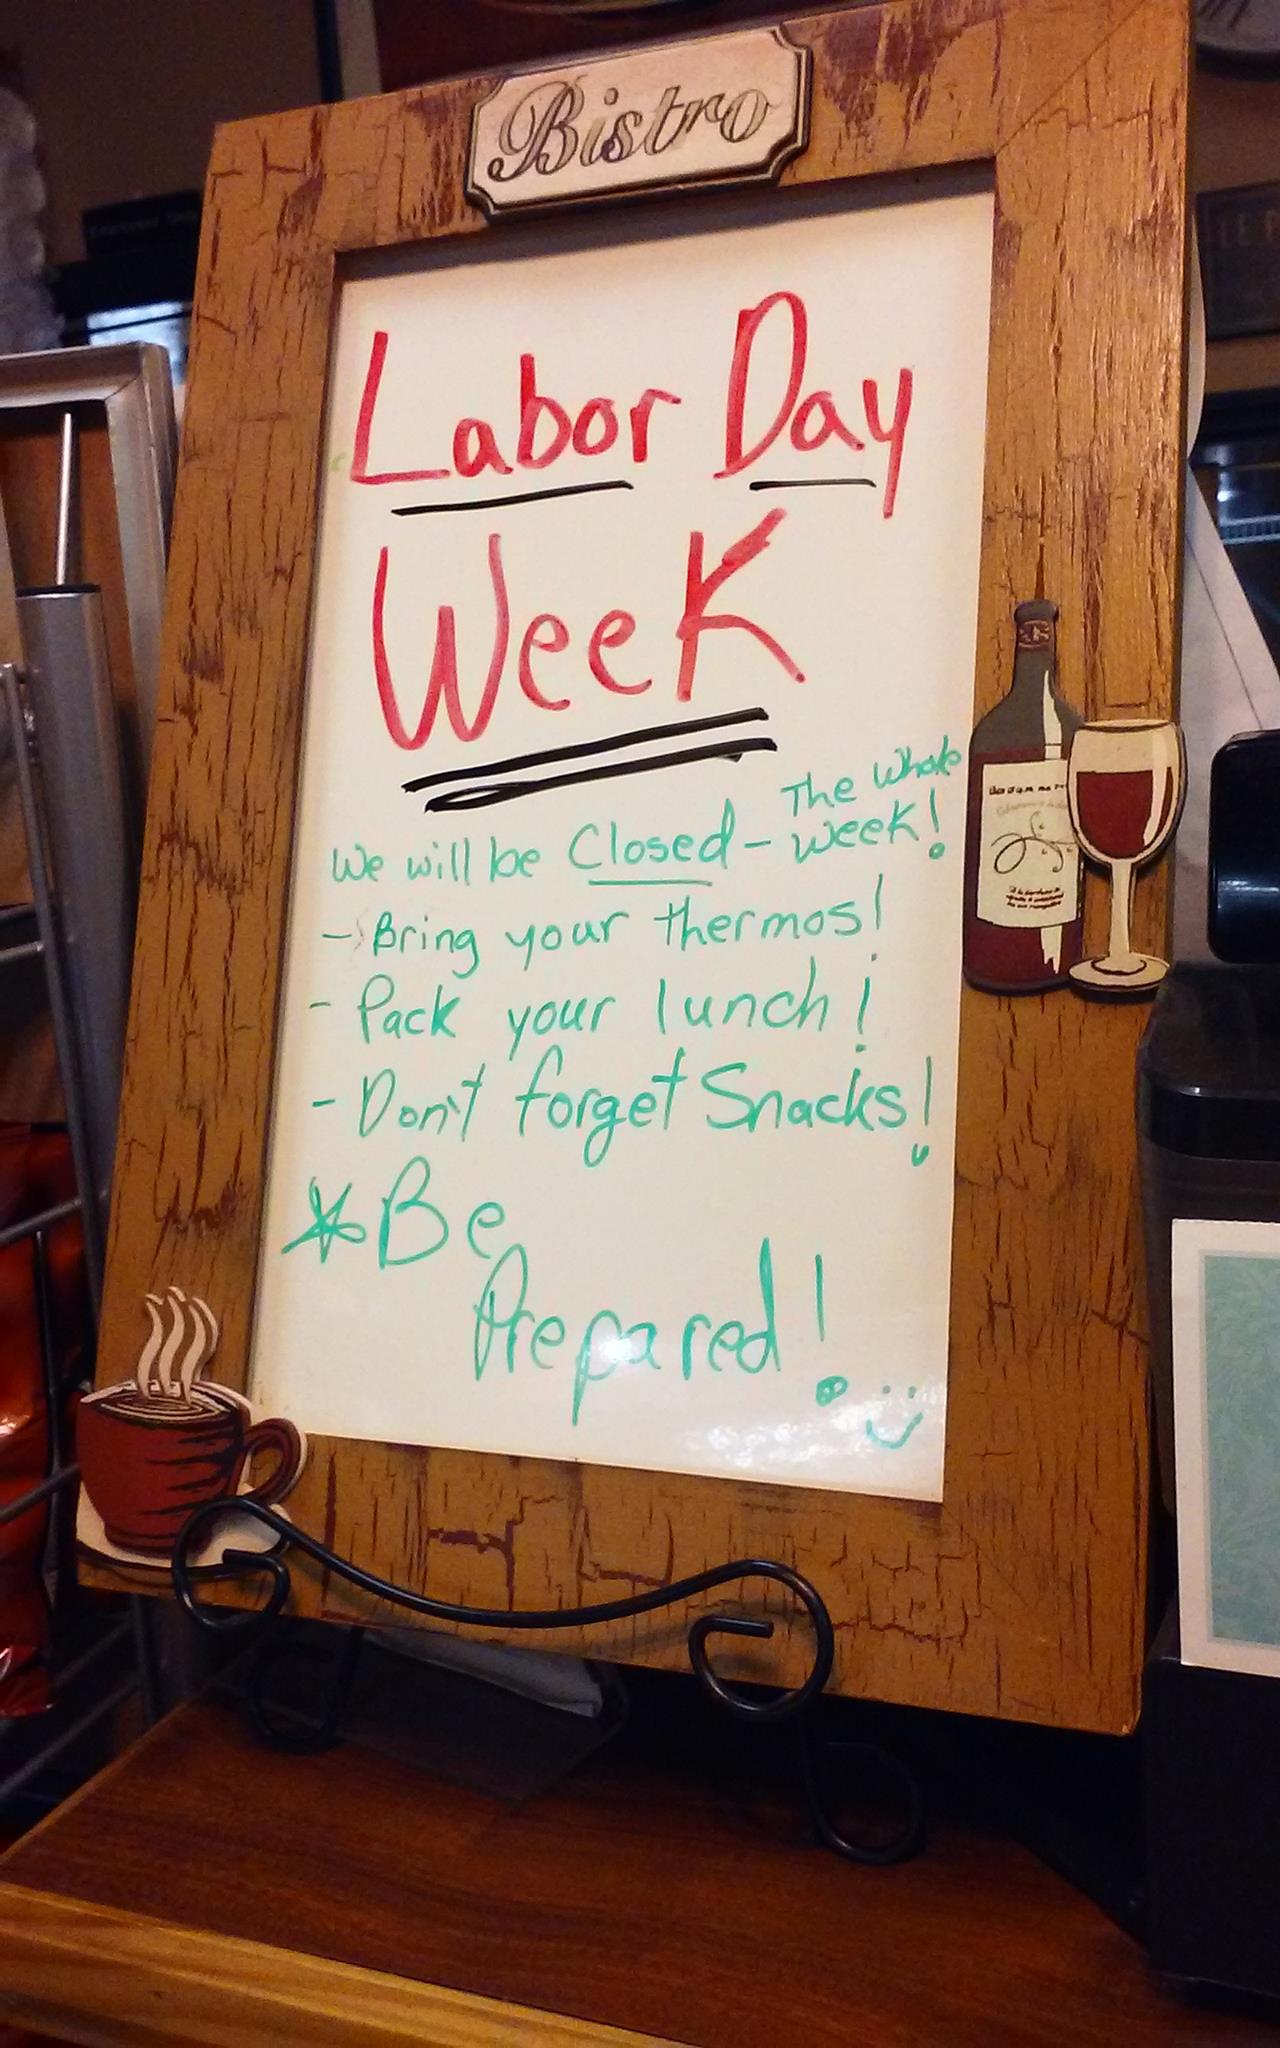 Bistro
Labor Day
Week
We will be Closed - The Whole
week!
- Bring your thermos!
- Pack your lunch!
- Don't forget Snacks!
* Be
Prepared!